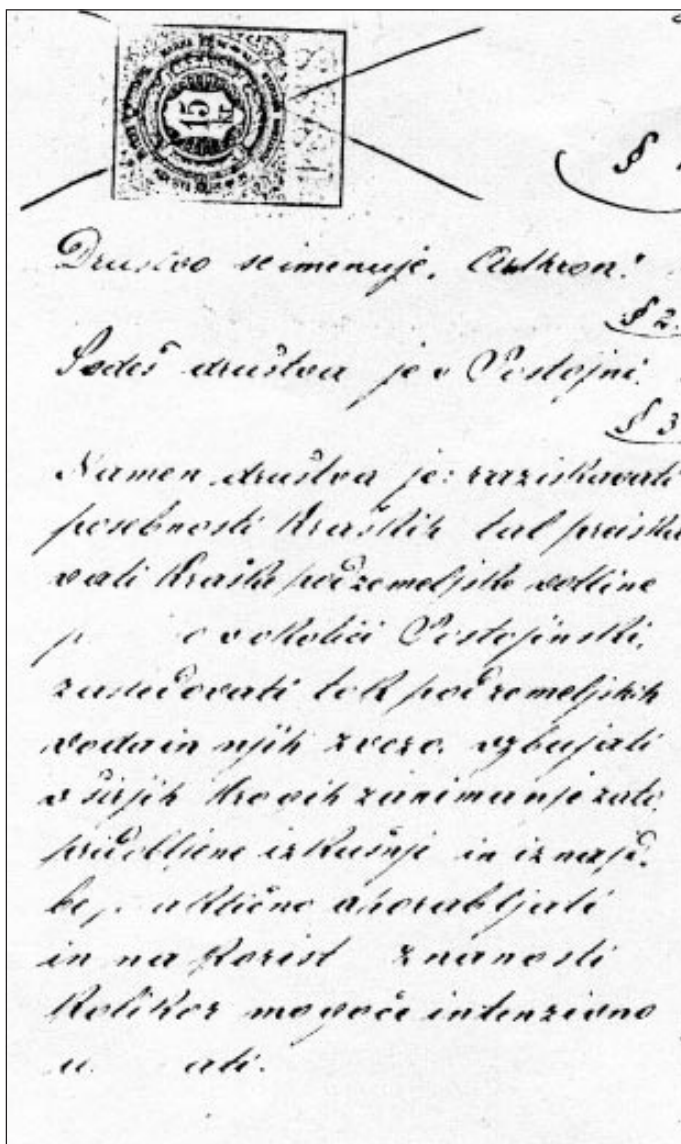 15
§
Društvo se imenuje. Anthron!
§ 2.
Sedeš društva je v Postojni.
§ 3
Namen društva je: raziskavati
posebnosti kraških tal preiska
vati kraške podzemeljske votline
v okolici Postojinski,
zasledovati tok podzemeljskih
voda in njih zvezo. vzbujati
v širjih krogih zanimanje zato
pridobljene izkušnje in iznajd.
be, uporabljati
in na korist znanosti
kolikor mogoče intenzivno